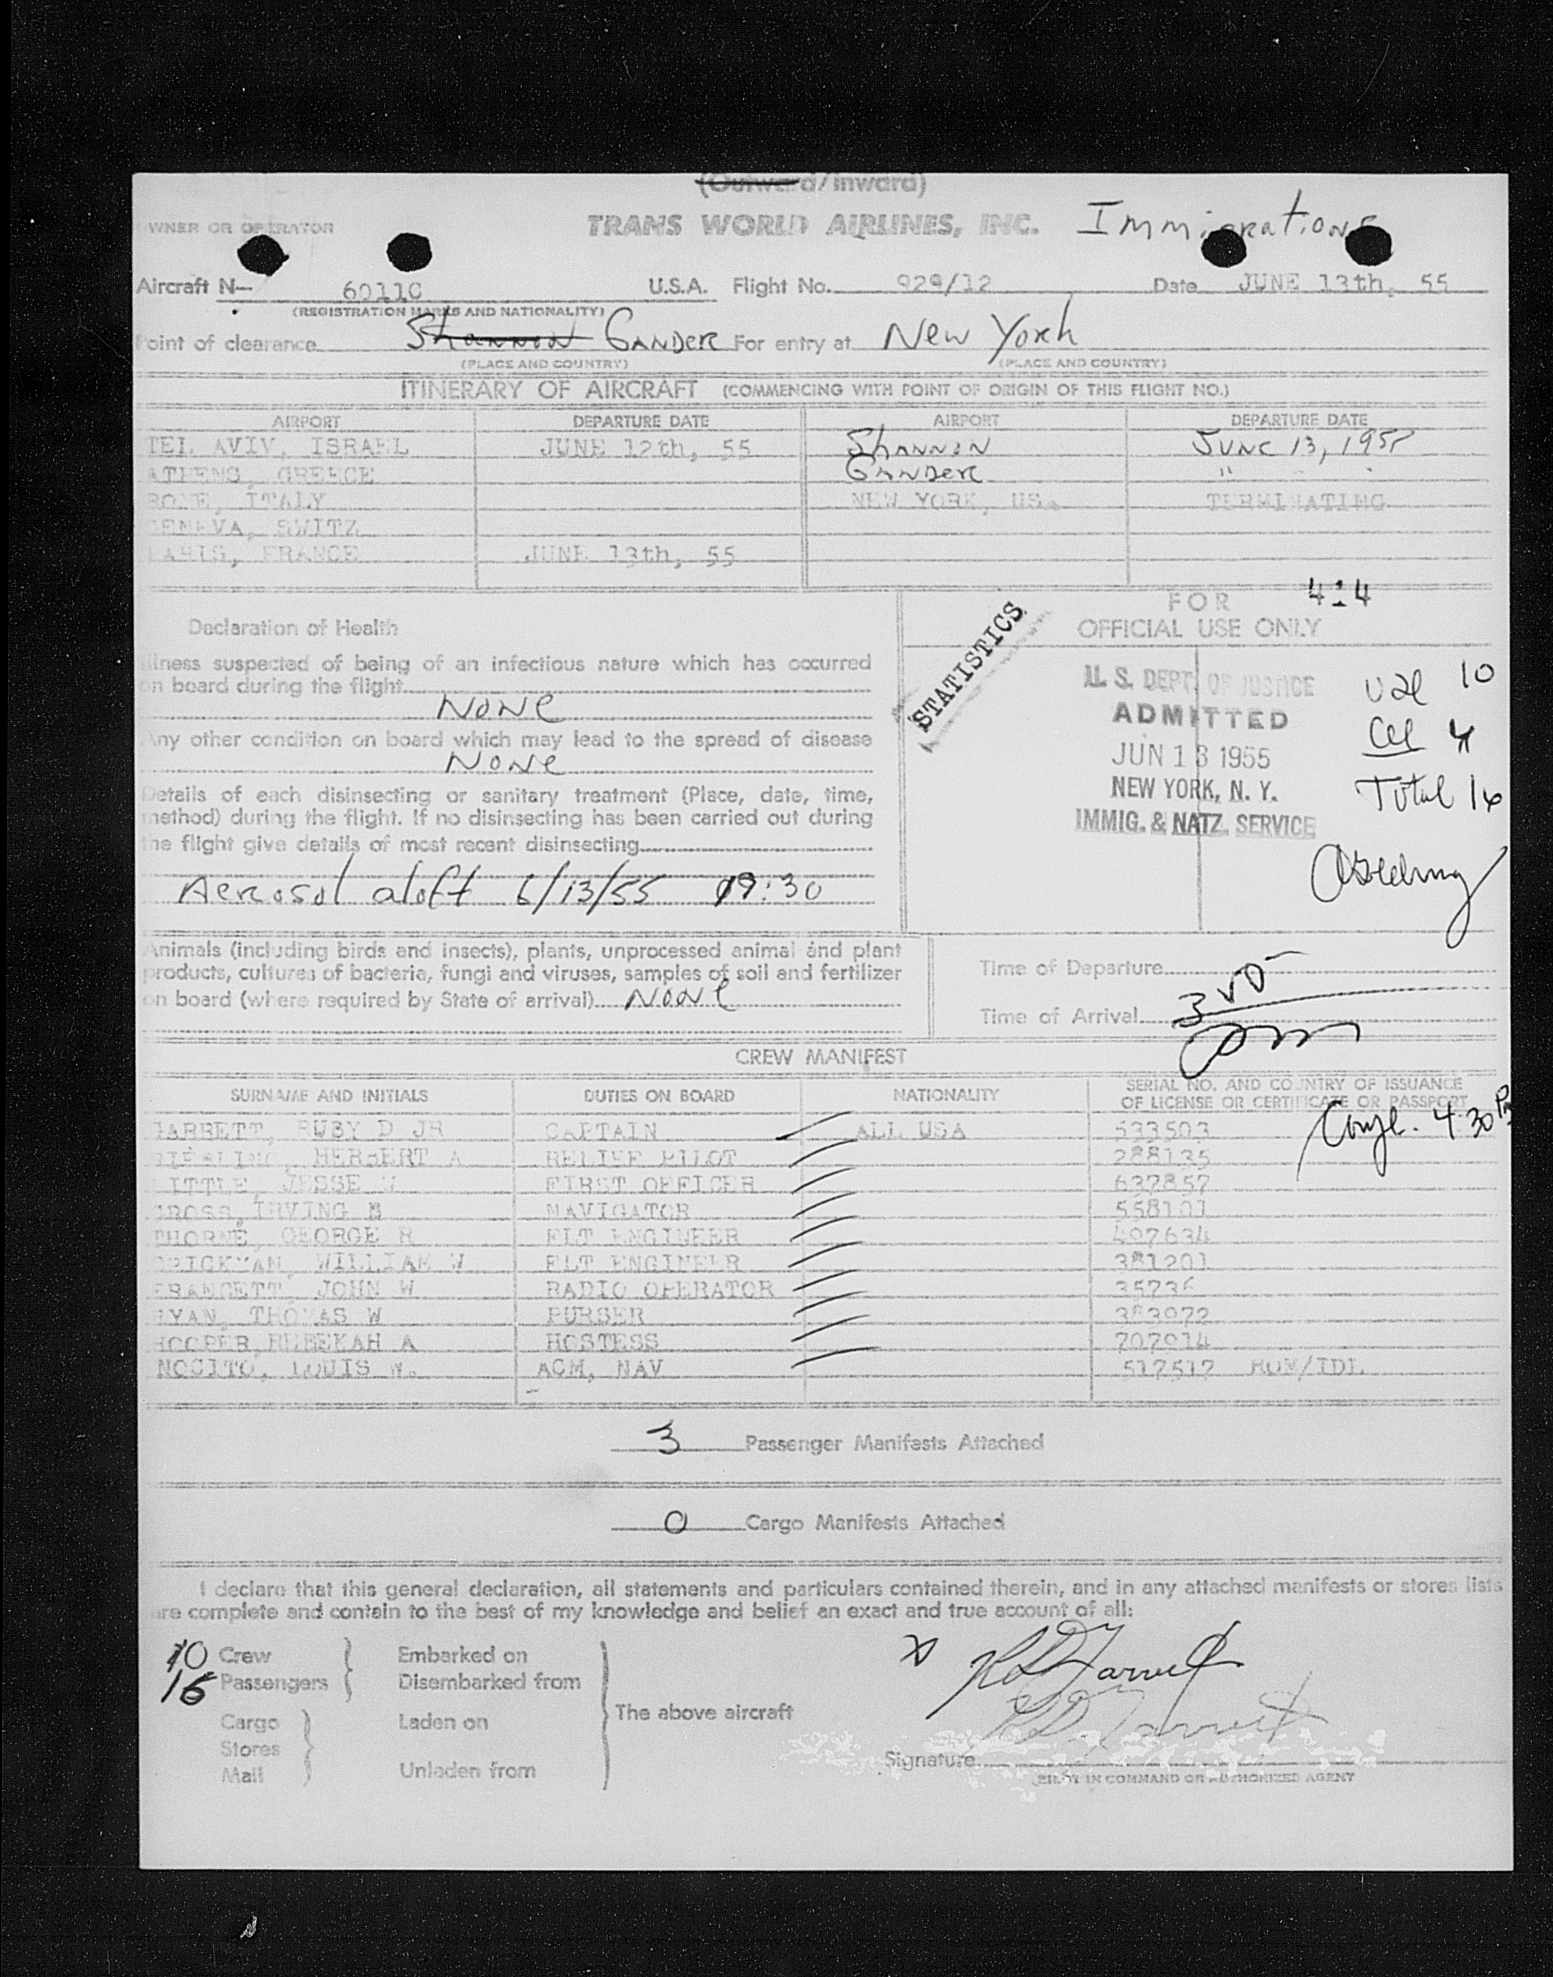 (Outward/Inward)
OWNER OR OPERATOR TRANS WORLD AIRLINES, INC. Immigrations
Aircraft N- 6011C U.S.A. Flight No. 929/12 Date JUNE 13th, 55
(REGISTRATION MARKS AND NATIONALITY)
Point of clearance Shannon GANDER For entry at New York
(PLACE AND COUNTRY) (PLACE AND COUNTRY)
ITINERARY OF AIRCRAFT (COMMENCING WITH POINT OF ORIGIN OF THIS FLIGHT NO.)
AIRPORT DEPARTURE DATE AIRPORT DEPARTURE DATE
TEL AVIV, ISRAEL JUNE 12th, 55 SHANNON JUNE 13, 1955
ATHENS, GREECE GANDER "
ROME, ITALY NEW YORK, US. TERMINATING
GENEVA, SWITZ
PARIS, FRANCE JUNE 13th, 55
FOR 414
Declaration of Health OFFICIAL USE ONLY
STATISTICS
Illness suspected of being of an infectious nature which has occurred
on board during the flight
None
Any other condition on board which may lead to the spread of disease
None
Details of each disinsecting or sanitary treatment (Place, date, time,
method) during the flight. If no disinsecting has been carried out during
the flight give details of most recent disinsecting
Aerosol aloft 6/13/55 19:30
U. S. DEPT. OF JUSTICE
ADMITTED
JUN 13 1955
NEW YORK, N. Y.
IMMIG. & NATZ. SERVICE
10
4
Total 14
Animals (including birds and insects), plants, unprocessed animal and plant
products, cultures of bacteria, fungi and viruses, samples of soil and fertilizer
on board (where required by State of arrival) None
Time of Departure
Time of Arrival 350
CREW MANIFEST
SURNAME AND INITIALS DUTIES ON BOARD NATIONALITY SERIAL NO. AND COUNTRY OF ISSUANCE
OF LICENSE OR CERTIFICATE OR PASSPORT
GARRETT, RUBY D JR CAPTAIN ALL USA 533503
4:30 PM
HERBERT A RELIEF PILOT 288135
LITTLE, JESSE W FIRST OFFICER 637857
GROSS, IRVING B NAVIGATOR 558101
THORNE, GEORGE R FLT ENGINEER 497634
BRICKMAN, WILLIAM W FLT ENGINEER 381201
FRANCETT, JOHN W RADIO OPERATOR 35736
RYAN, THOMAS W PURSER 383972
HOOPER, REBEKAH A HOSTESS 707914
NOCITO, LOUIS W. ACM, NAV 517517 ROM/IDL
3 Passenger Manifests Attached
0 Cargo Manifests Attached
I declare that this general declaration, all statements and particulars contained therein, and in any attached manifests or stores lists
are complete and contain to the best of my knowledge and belief an exact and true account of all:
10 Crew Embarked on
16 Passengers Disembarked from
The above aircraft
Cargo Laden on
Stores
Mail Unladen from
RD Garrett
R.D. Garrett
Signature
(PILOT IN COMMAND OR AUTHORIZED AGENT